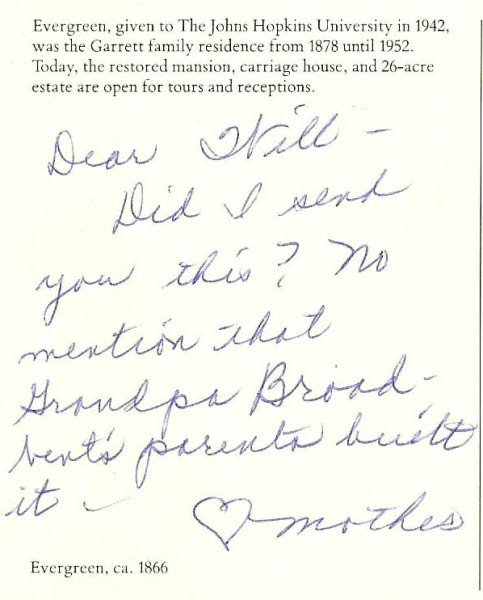 Evergreen, given to The Johns Hopkins University in 1942,
was the Garrett family residence from 1878 until 1952.
Today, the restored mansion, carriage house, and 26-acre
estate are open for tours and receptions.
Dear Will –
Did I send
you this? No
mention that
Grandpa Broad-
bent's parents built
it –
♡ mother
Evergreen, ca. 1866